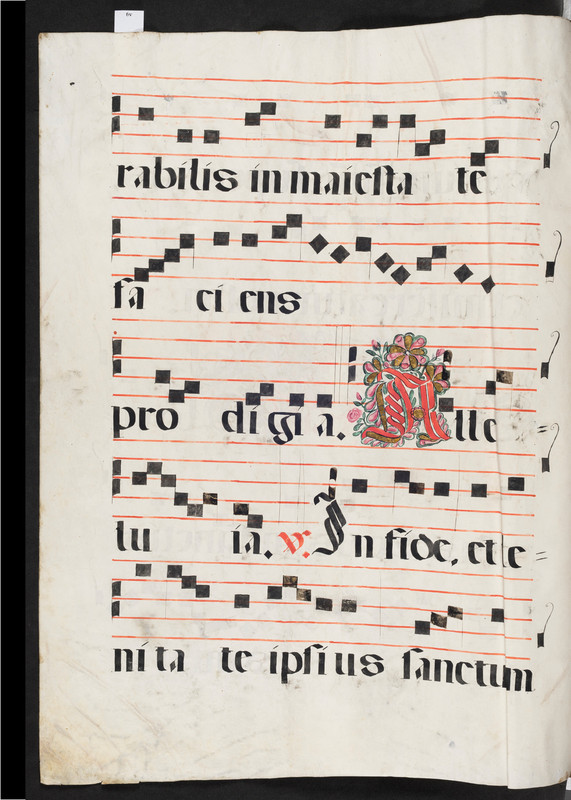 rabilis in maiesta te
fa ci ens
pro di gi a. Alle=
lu ia. v. In fide, et le=
ni ta te ipsi us sanctum